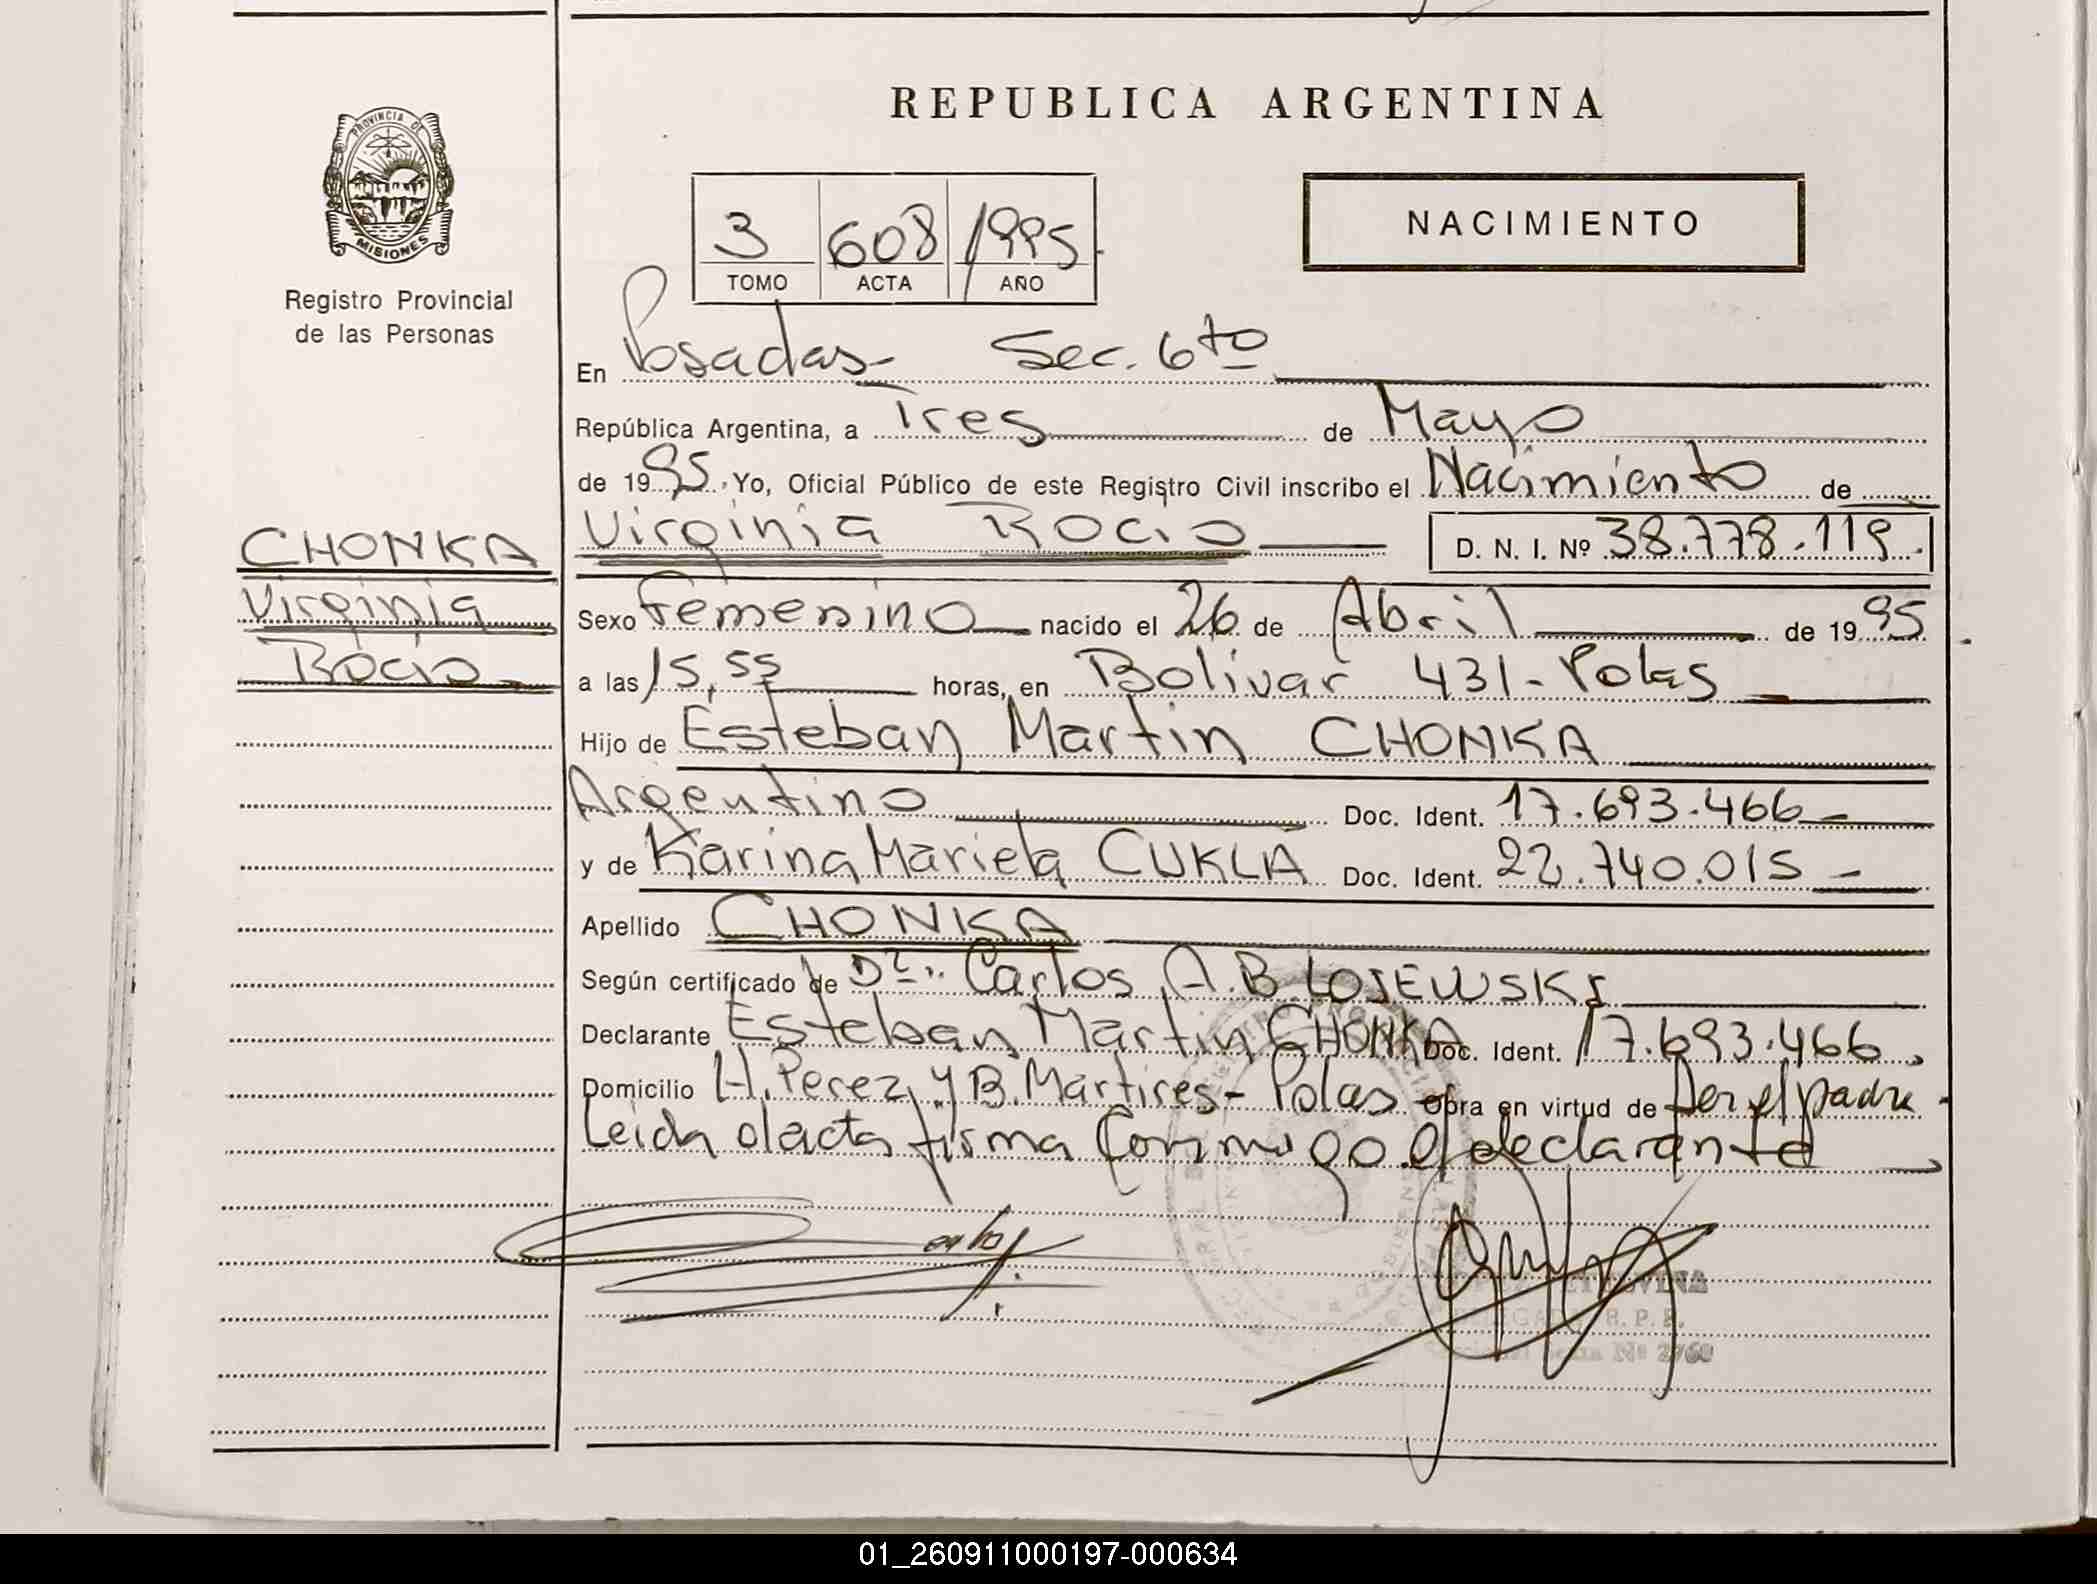 PROVINCIA DE
MISIONES
Registro Provincial
de las Personas
REPUBLICA ARGENTINA
3 608 1995
TOMO ACTA AÑO
NACIMIENTO
En Posadas- Sec. 6to
República Argentina, a Tres de Mayo
de 1995. Yo, Oficial Público de este Registro Civil inscribo el Nacimiento de
CHONKA
Virginia
Rocio
Virginia Rocio D. N. I. Nº 38.778.119.
Sexo Femenino nacido el 26 de Abril de 1995
a las 15,55 horas, en Bolivar 431-Pdas
Hijo de Esteban Martin CHONKA
Argentino Doc. Ident. 17.693.466-
y de Karina Mariela CUKLA Doc. Ident. 22.740.015-
Apellido CHONKA
Según certificado de Dr. Carlos A.B. LOSEWSKI
Declarante Esteban Martin CHONKA Doc. Ident. 17.693.466
Domicilio H. Perez y B. Martires- Pdas Obra en virtud de ser el padre
Leida el acta firma conmigo el declarante
DELEGADA R.P.P.
Nº 2760
01_260911000197-000634